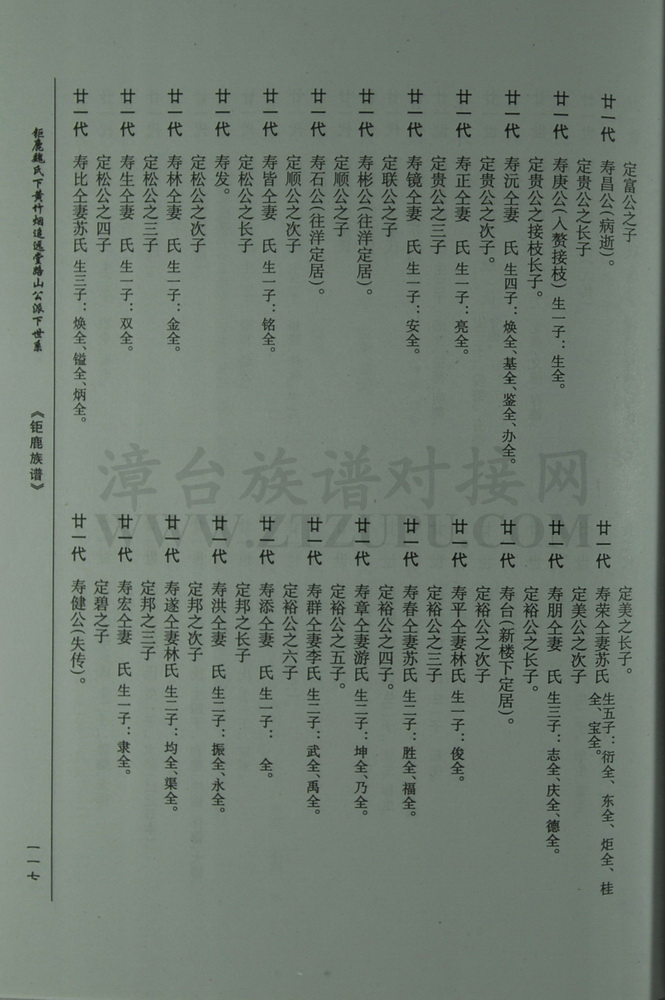 定富公之子
廿一代 寿昌公(病逝)。
定贵公之长子
廿一代 寿庚公(人赘接枝) 生一子：生全。
定贵公之接枝长子。
廿一代 寿沅仝妻 氏 生四子：焕全、基全、鉴全、办全。
定贵公之次子。
廿一代 寿正仝妻 氏 生一子：亮全。
定贵公之三子
廿一代 寿镜仝妻 氏 生一子：安全。
定联公之子
廿一代 寿彬公(往洋定居)。
定顺公之子
廿一代 寿石公(往洋定居)。
定顺公之次子
廿一代 寿皆仝妻 氏 生一子：铭全。
定松公之长子
廿一代 寿发。
定松公之次子
廿一代 寿林仝妻 氏 生一子：金全。
定松公之三子
廿一代 寿生仝妻 氏 生一子：双全。
定松公之四子
廿一代 寿比仝妻苏氏 生三子：焕全、镒全、炳全。
定美之长子。
廿一代 寿荣仝妻苏氏 生五子：衍全、东全、炬全、桂
全、宝全。
定美公之次子
廿一代 寿朋仝妻 氏 生三子：志全、庆全、德全。
定裕公之长子。
廿一代 寿台(新楼下定居)。
定裕公之次子
廿一代 寿平仝妻林氏 生一子：俊全。
定裕公之三子
廿一代 寿春仝妻苏氏 生二子：胜全、福全。
定裕公之四子。
廿一代 寿章仝妻游氏 生二子：坤全、乃全。
定裕公之五子。
廿一代 寿群仝妻李氏 生二子：武全、禹全。
定裕公之六子
廿一代 寿添仝妻 氏 生一子： 全。
定邦之长子
廿一代 寿洪仝妻 氏 生二子：振全、永全。
定邦之次子
廿一代 寿遂仝妻林氏 生二子：均全、渠全。
定邦之三子
廿一代 寿宏仝妻 氏 生一子：隶全。
定碧之子
廿一代 寿健公(失传)。
钜鹿魏氏下黄竹烟追远堂踏山公派下世系
《钜鹿族谱》
一一七
漳台族谱对接网
WWW.ZTZUPU.COM